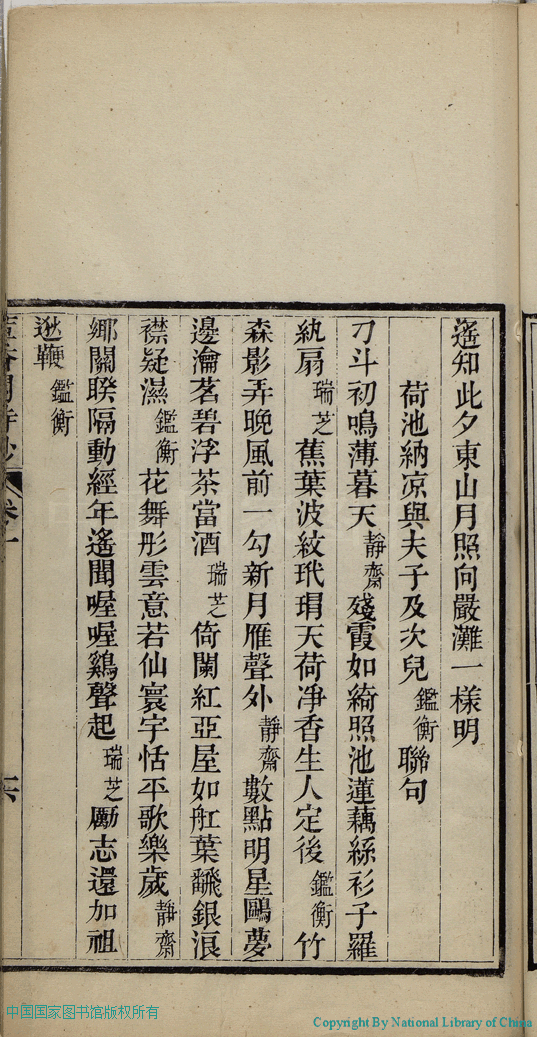 遙知此夕東山月照向嚴灘一樣明
荷池納凉與夫子及次兒鑑衡聯句
刀斗初鳴薄暮天靜齋殘霞如綺照池蓮藕絲衫子羅
紈扇瑞芝蕉葉波紋玳瑁天荷凈香生人定後鑑衡竹
森影弄晚風前一勾新月雁聲外靜齋數點明星鷗夢
邊瀹茗碧浮茶當酒瑞芝倚闌紅亞屋如舡葉飜銀浪
襟疑濕鑑衡花舞彤雲意若仙寰宇恬平歌樂歲靜齋
鄉關睽隔動經年遙聞喔喔鷄聲起瑞芝勵志還加祖
逖鞭鑑衡
卷一
六
中国国家图书馆版权所有
Copyright By National Library of China